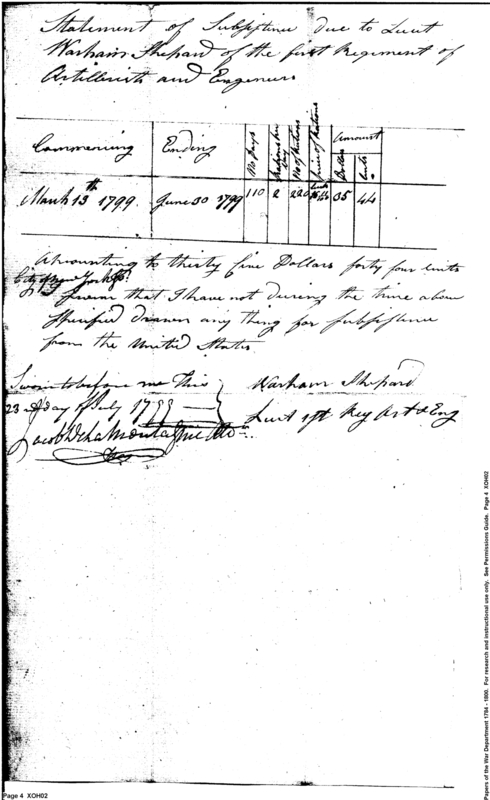 Statement of Subsistence due to Lieut
Warham Shepard of the first Regiment of
Artillerists and Engineers
Commencing Ending No days Rations per day No of Rations price of Rations Amount
Dollars Cents
March 13th 1799 June 30 1799 110 2 220 35 44
Amounting to thirty five Dollars forty four Cents
City of New York Ss.
I Swear that I have not during the time above
specified drawn any thing for Subsistence
from the United States
Sworn to before me this
23rd day of July 1799
Warham Shepard
Lieut 1st Reg Art & Eng
Page 4 XOH02
Papers of the War Department 1784 - 1800. For research and instructional use only. See Permissions Guide. Page 4 XOH02